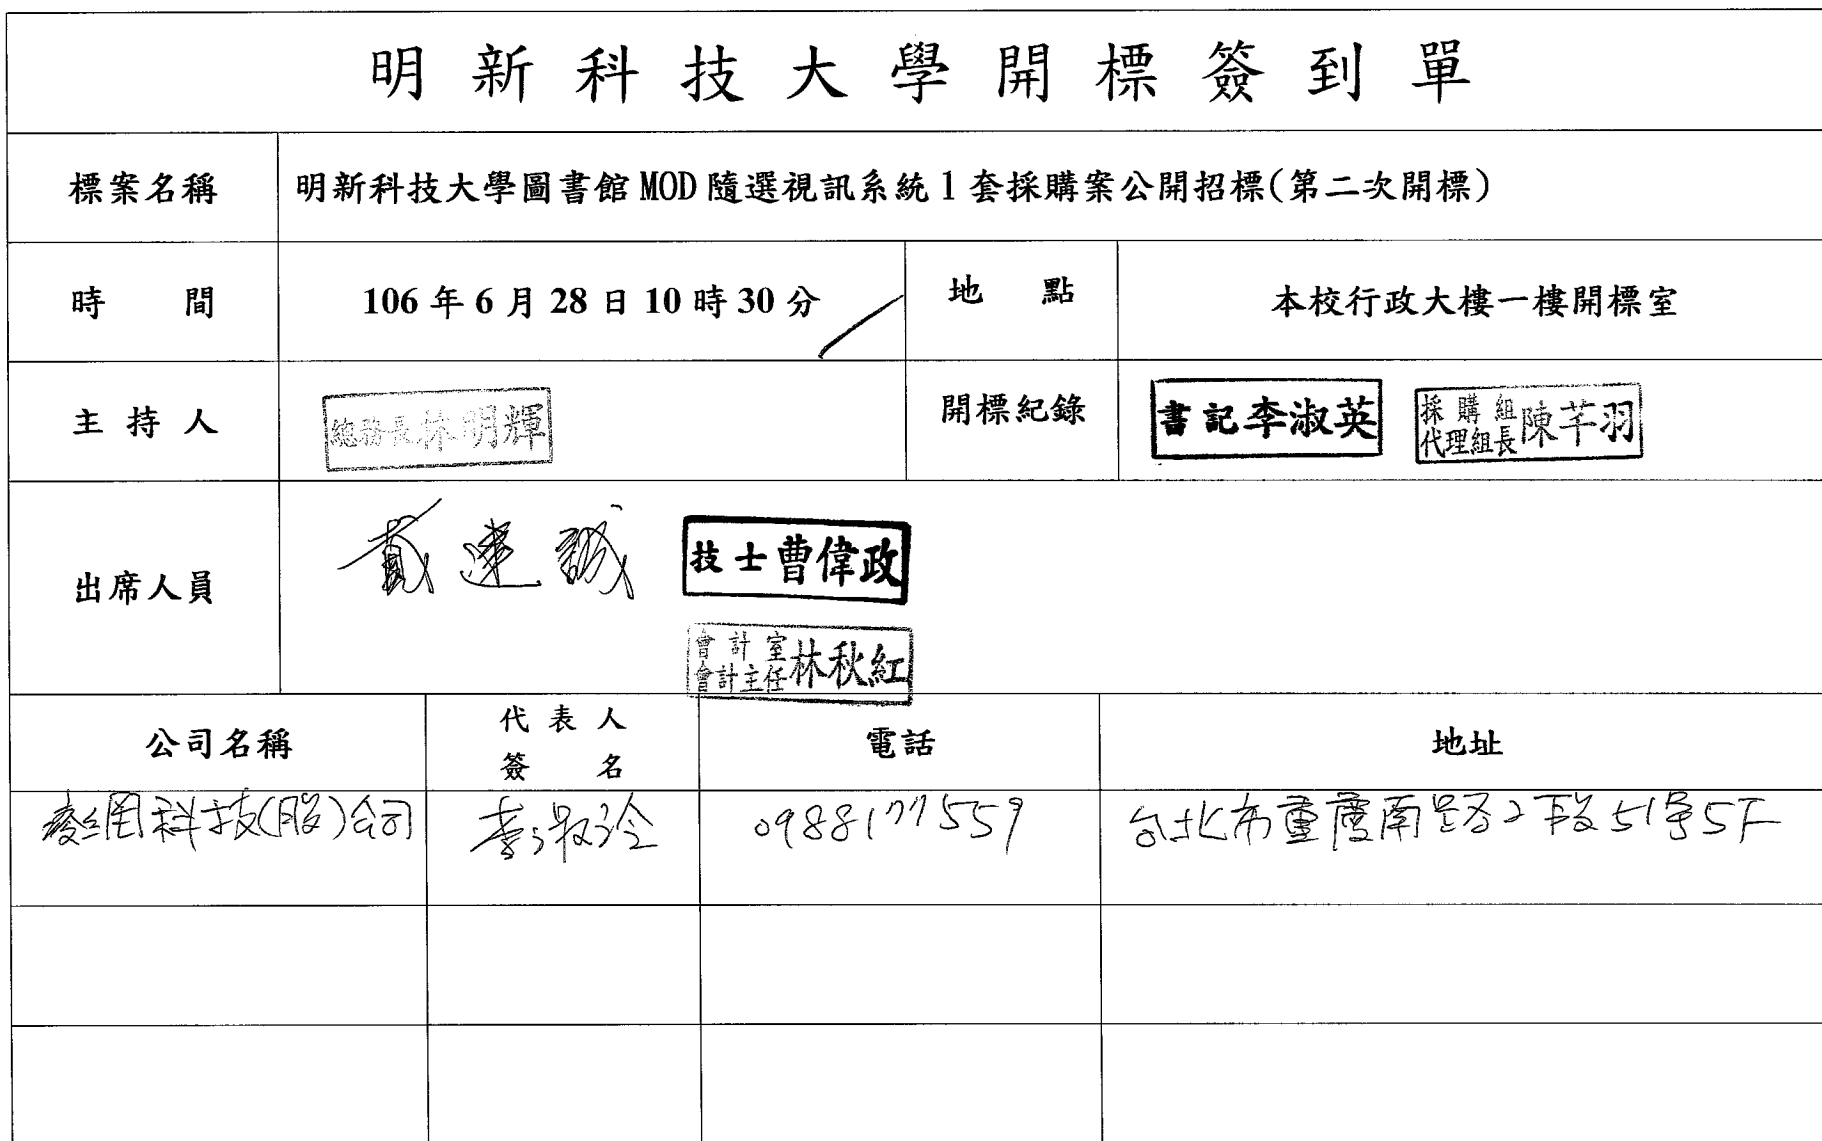 明新科技大學開標簽到單
標案名稱 明新科技大學圖書館MOD隨選視訊系統1套採購案公開招標(第二次開標)
時間 106年6月28日10時30分 地點 本校行政大樓一樓開標室
主持人 總務長林明輝 開標紀錄 書記李淑英 採購組代理組長陳芊羽
出席人員 戴達誠 技士曹偉政
會計室會計主任林秋紅
公司名稱 代表人簽名 電話 地址
網科技(股)公司 李淑玲 0988177559 台北市重慶南路2段51号5F